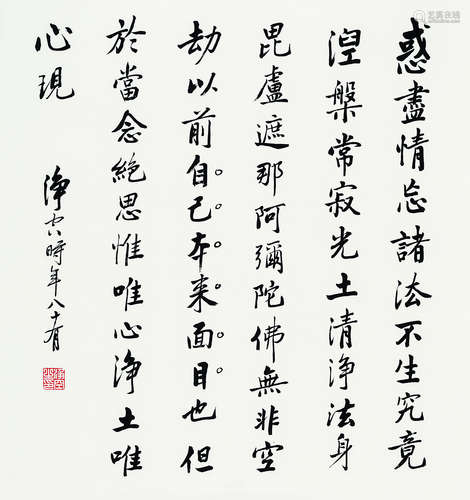 惑盡情忘諸法不生究竟
涅槃常寂光土清淨法身
毘盧遮那阿彌陀佛無非空
劫以前自己本来面目也但
於當念絕思惟唯心淨土唯
心現
淨空時年八十有